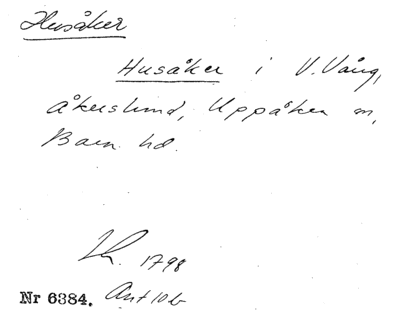 Husåker
Husåker i V. Vång,
Åkerslund, Uppåkra sn,
Bara hd.
1798
Nr 6384. Ant 10 b